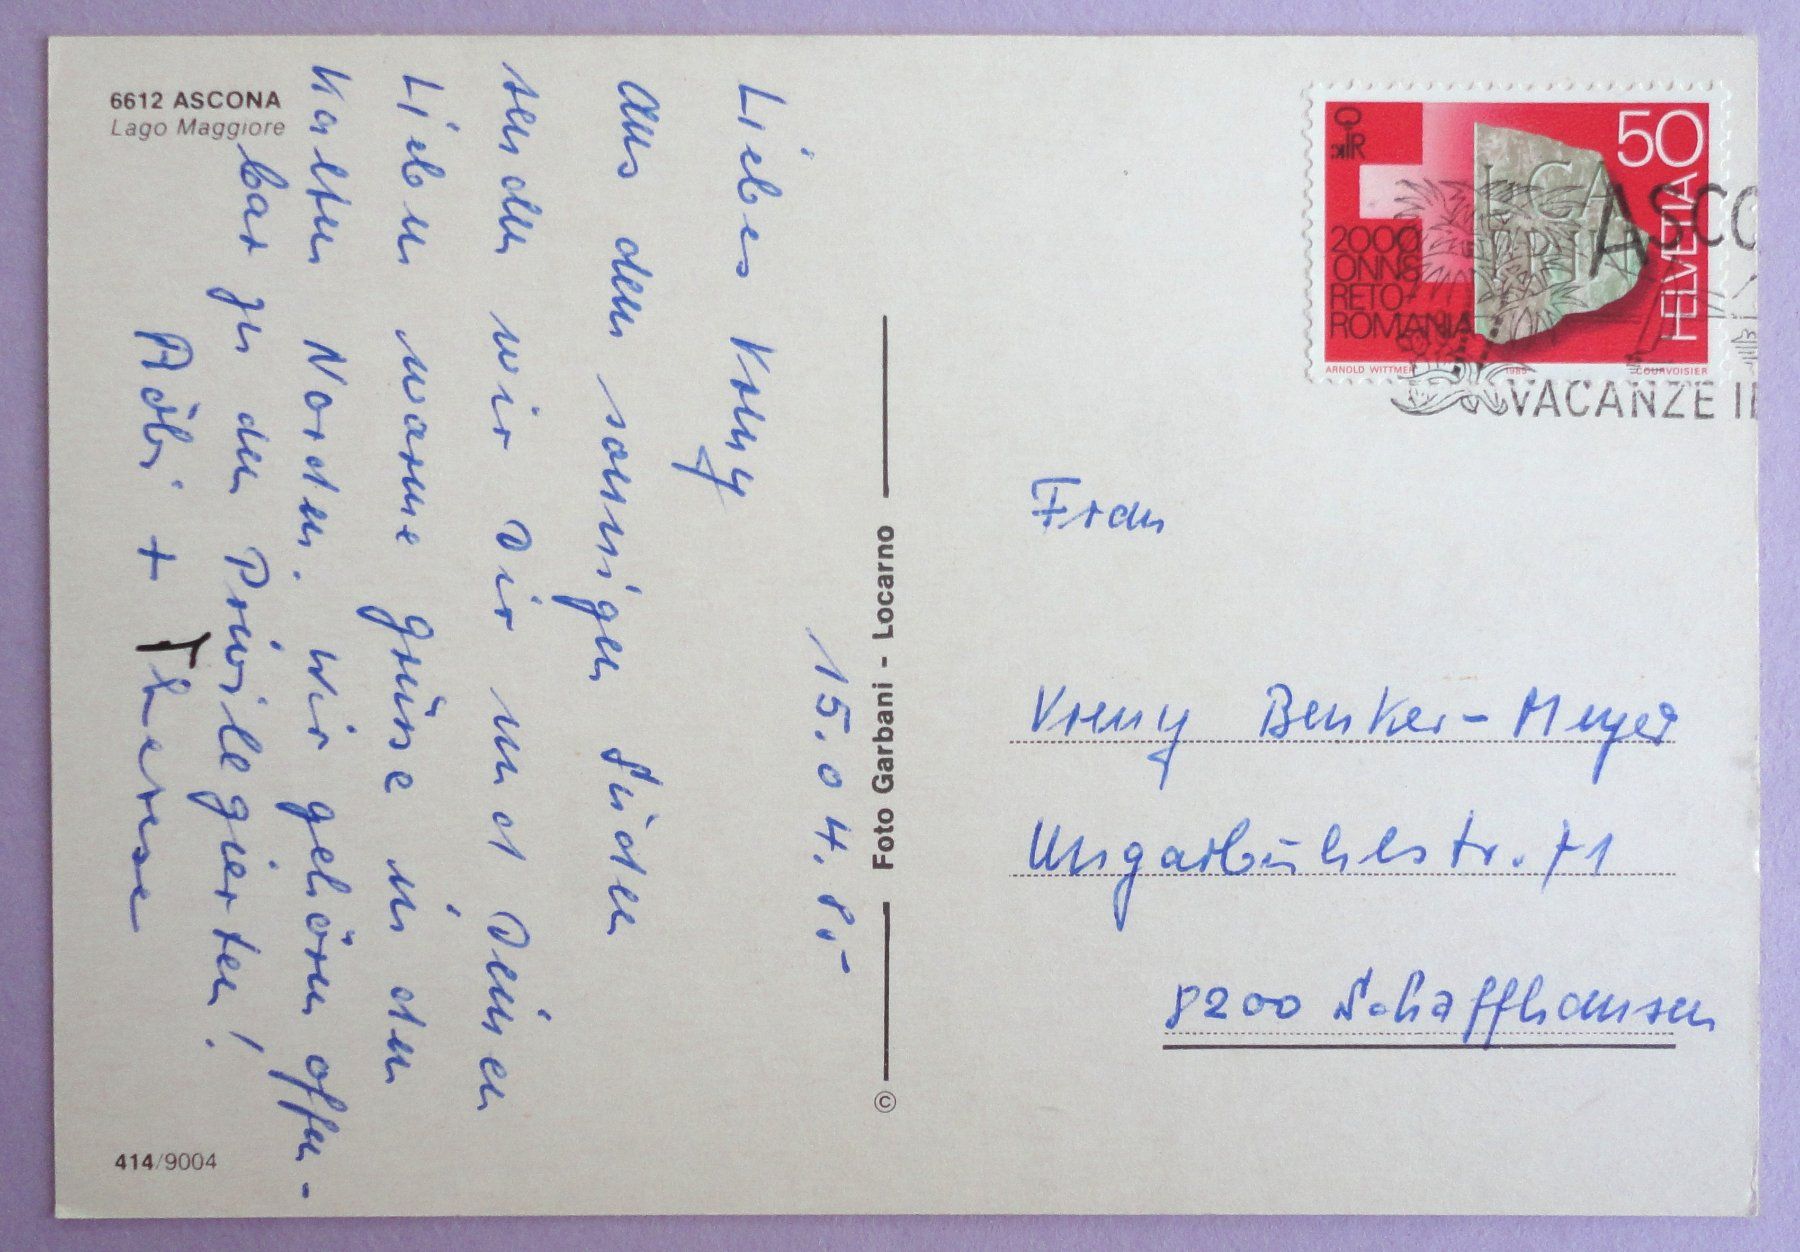 6612 ASCONA
Lago Maggiore
15.04.85
Liebes Vreny
aus dem sonnigen Süden
senden wir Dir und Deinen
Lieben warme Grüsse in den
kalten Norden. Wir gehören offen-
bar zu den Privilegierten!
Röbi + Therese
414/9004
© Foto Garbani - Locarno
50
HELVETIA
2000
ONNS
RETO-
ROMANIA
ARNOLD WITTMER 1985 COURVOISIER
ASCO
VACANZE I
Frau
Vreny Benker-Meyer
Ungarbühlstr. 71
8200 Schaffhausen